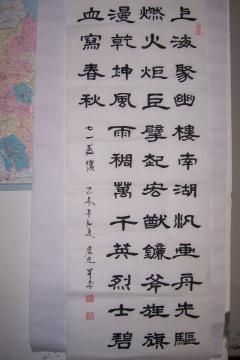 上海聚幽樓南湖汎画舟先驅
燃火炬巨擘起宏猷鐮斧旌旗
漫乾坤風雨稠萬千英烈士碧
血寫春秋
七一感懷
乙未年